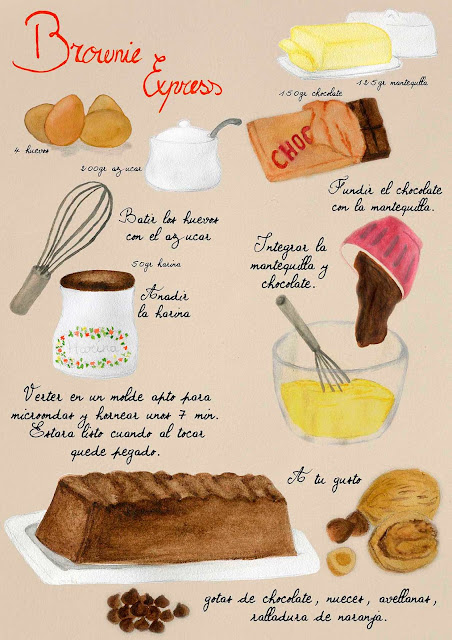 Brownie
Express
125gr mantequilla
150gr chocolate
4 huevos
200gr azucar
CHOC
Fundir el chocolate
con la mantequilla.
Batir los huevos
con el azucar
50gr harina
Añadir
la harina
Harina
Integrar la
mantequilla y
chocolate.
Verter en un molde apto para
microondas y hornear unos 7 min.
Estara listo cuando al tocar
quede pegado.
A tu gusto
gotas de chocolate, nueces, avellanas,
ralladura de naranja.